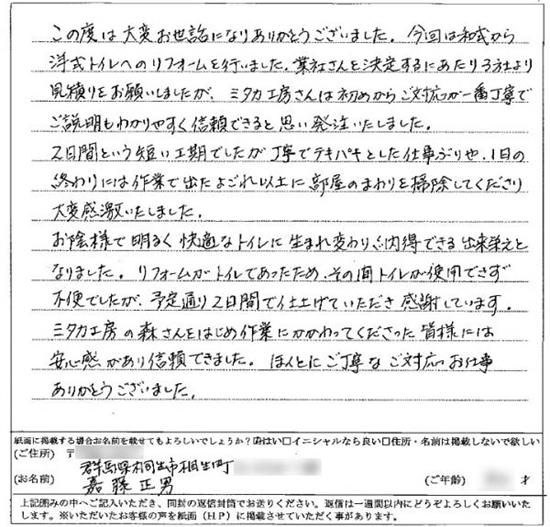 この度は大変お世話になりありがとうございました。今回は和式から
洋式トイレへのリフォームを行いました。業社さんを決定するにあたり3社より
見積りをお願いしましたが、ミタカ工房さんは初めからご対応が一番丁寧で
ご説明もわかりやすく信頼できると思い発注いたしました。
2日間という短い工期でしたが丁寧でテキパキとした仕事ぶりや、1日の
終わりには作業で出たよごれ以上に部屋のまわりを掃除してくださり
大変感激いたしました。
お陰様で明るく快適なトイレに生まれ変わり納得できる出来栄えと
なりました。リフォームがトイレであったため、その間トイレが使用できず
不便でしたが、予定通り2日間で仕上げていただき感謝しています。
ミタカ工房の森さんをはじめ作業にかかわってくださった皆様には
安心感があり信頼できました。ほんとにご丁寧なご対応お仕事
ありがとうございました。
紙面に掲載する場合お名前を載せてもよろしいでしょうか?☑はい□イニシャルなら良い□住所・名前は掲載しないで欲しい
(ご住所) 〒
群馬県桐生市相生町
(お名前) 嘉藤正男 (ご年齢) 才
上記囲みの中へご記入いただき、同封の返信封筒でお送りください。返信は一週間以内にどうぞよろしくお願いいた
します。※いただいたお客様の声を紙面(HP)に掲載させていただく事があります。